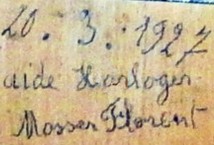 20. 3. 1927
aide Horloger
Mosser Florent